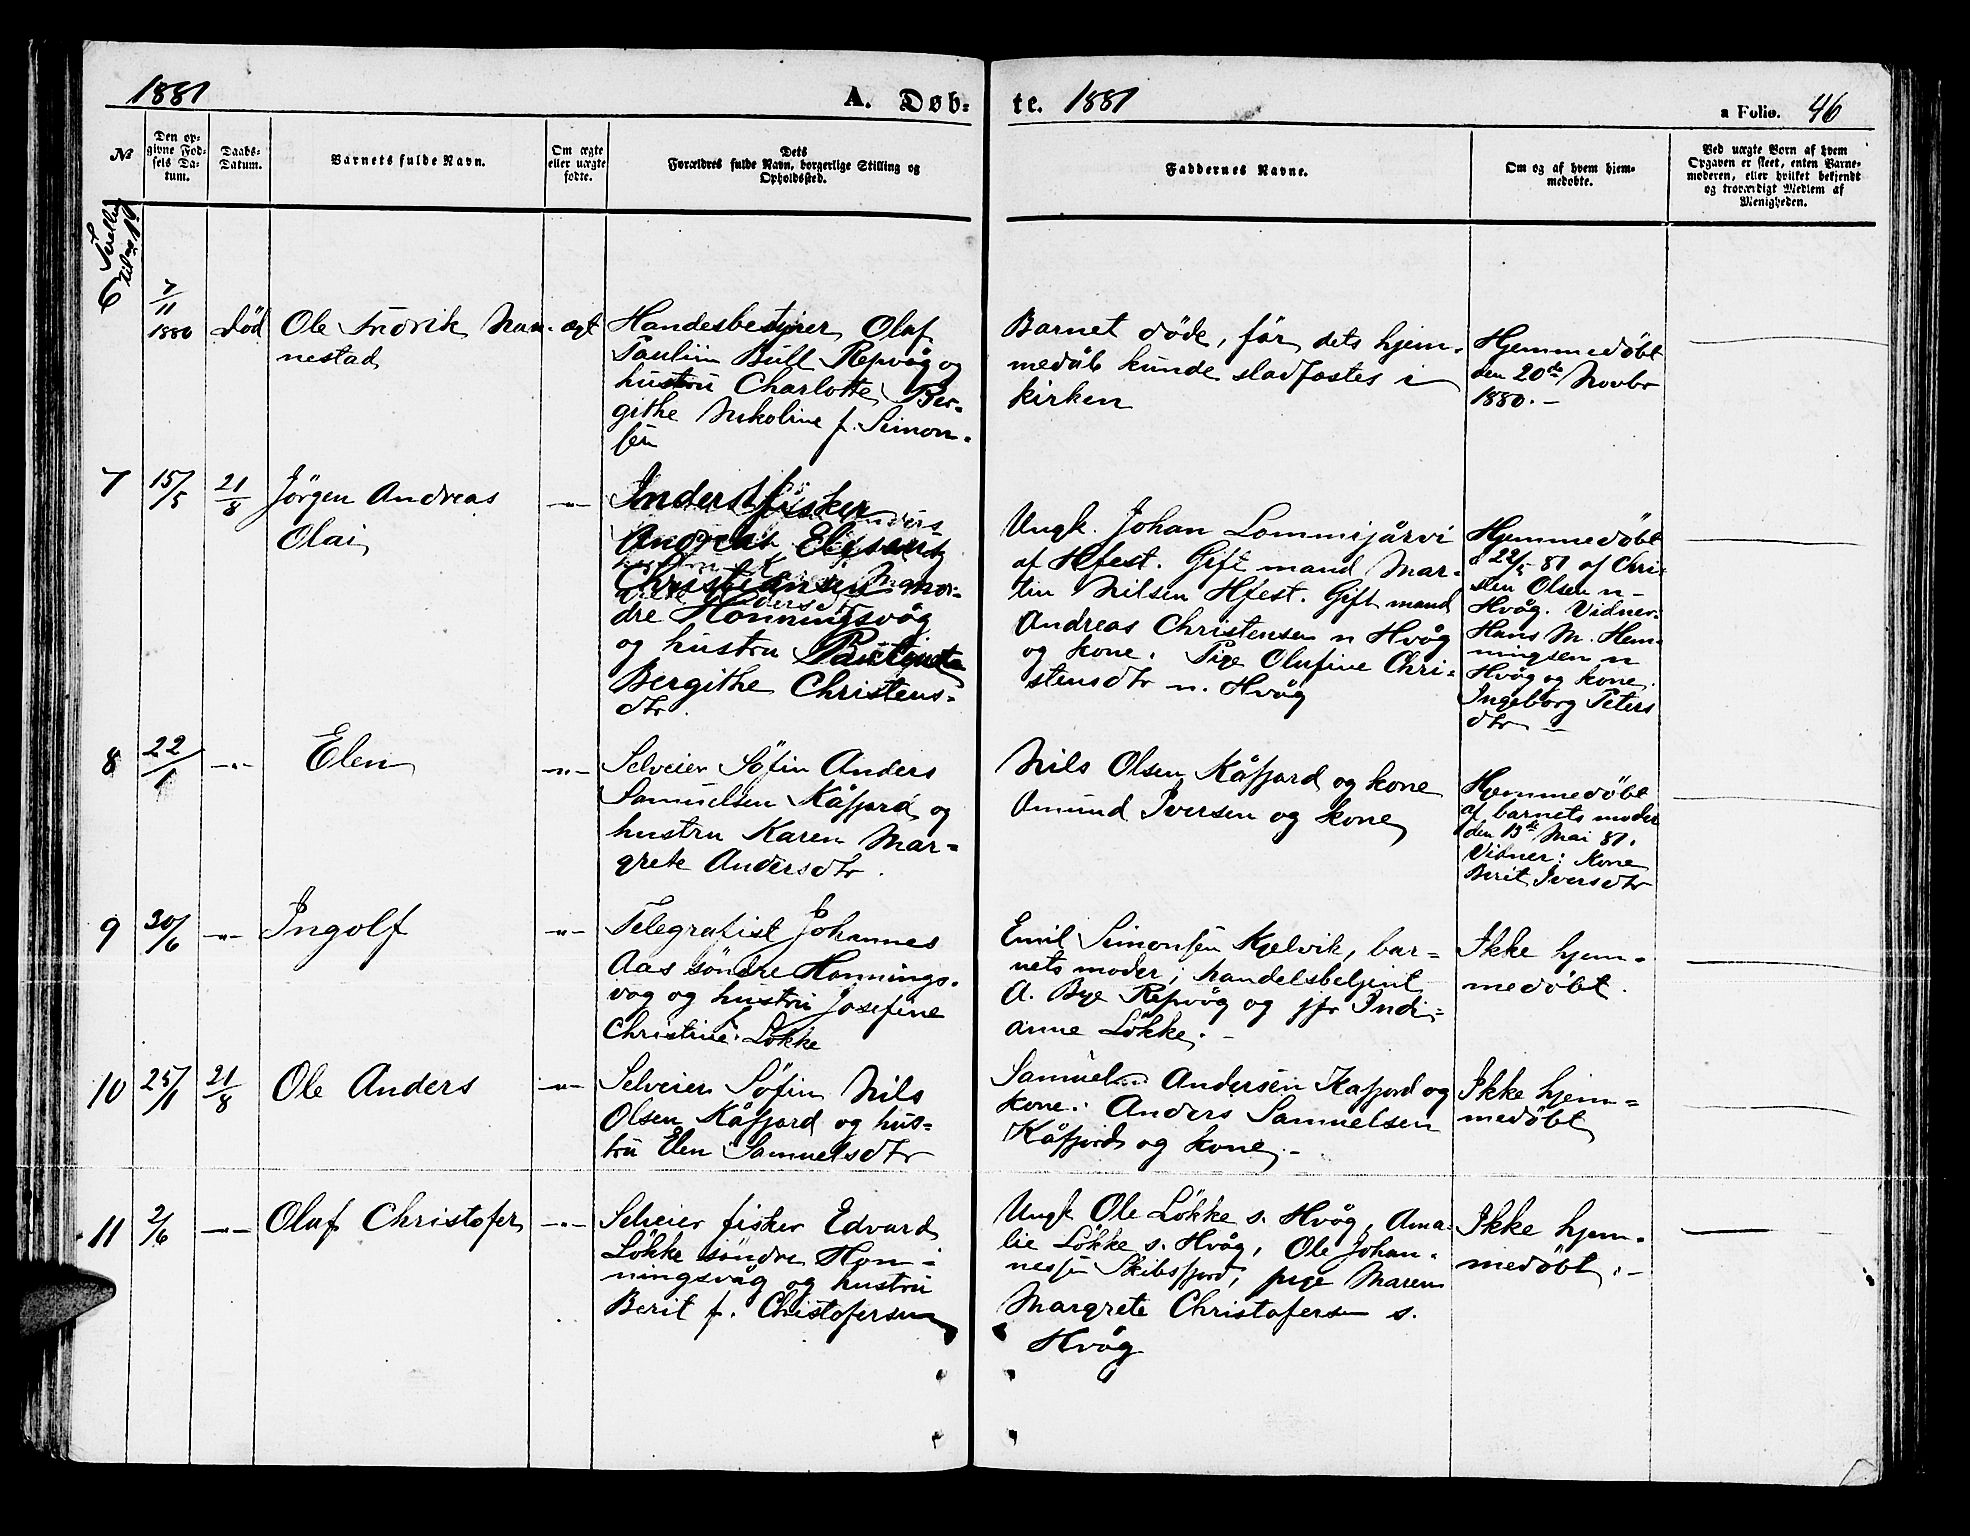 1881
A. Døb-
te. 1881
a Folio. 46
№
Den op-
givne Fød-
sels Da-
tum.
Daabs-
Datum.
Barnets fulde Navn.
Om ægte
eller uægte
fødte.
Dets
Forældres fulde Navn, borgerlige Stilling og
Opholdssted.
Faddernes Navne.
Om og af hvem hjem-
medøbte.
Ved uægte Born af hvem
Opgaven er skeet, enten Barne-
moderen, eller hvilket bekjendt
og troværdigt Medlem af
Menigheden.
6
7/11
1880
død
Ole Fredrik Nan-
nestad
ægt
Handesbestyrer Olaf
Pauliin Bull Repvåg og
hustru Charlotte Ber-
githe Nikoline f. Simon-
sen
Barnet døde, før dets hjem-
medåb kunde stadfæstes i
kirken
Hjemmedøbt
den 20de Novbr
1880.-
7
15/5
21/8
Jörgen Andreas
Olai
-"-
Inderstfisker
Andreas
Christiansen
dre Honningsvåg
og hustru
Bergithe Christens-
dtr.
Ungk. Johan Lommijärvi
af Hfest. Gift mand Mar-
tin Nilsen Hfest. Gift mand
Andreas Christensen n Hvåg
og kone. Pige Olufine Chri-
stensdtr n. Hvåg
Hjemmedöbt
22/5 81 af Chri-
sten Olsen n-
Hvåg. Vidner:
Hans M. Hem-
mingsen n
Hvåg og kone
Ingeborg Peters
dtr -
8
22/1
-"-
Elen
-"-
Selveier Söfin Anders
Samuelsen Kåfjord og
hustru Karen Mar-
grete Andersdtr.
Nils Olsen Kåfjord og kone
Amund Iversen og kone
Hjemmedöbt
af barnets moder
den 13de Mai 81.
Vidner: Kone
Berit Iversdtr
9
30/6
-"-
Ingolf
-"-
Telegrafist Johannes
Aas söndre Honnings-
vog og hustru Josefine
Christine f. Lökke
Emil Simonsen Kjelvik, bar-
nets moder; handelsbetjent
A. Bye Repvåg og jfr Indi-
anne Lökke. -
Ikke hjem-
medöbt.
10
25/1
21/8
Ole Anders
-"-
Selveier Söfin Nils
Olsen Kåfjord og hus-
tru Elen Samuelsdtr
Samuel Andersen Kafjord og
kone. Anders Samuelsen
Kåfjord og kone. -
Ikke hjem-
medöbt
11
2/6
-"-
Oluf Christofer
-"-
Selveier fisker Edvard
Lökke söndre Hon-
ningsvåg og hustru
Berit f. Christofersen
Ungk Ole Lökke s. Hvåg, Ama-
lie Lökke s. Hvåg, Ole Johan-
nessen Skibsfjord, pige Maren
Margrete Christofersen s.
Hvåg
Ikke hjem-
medöbt. -